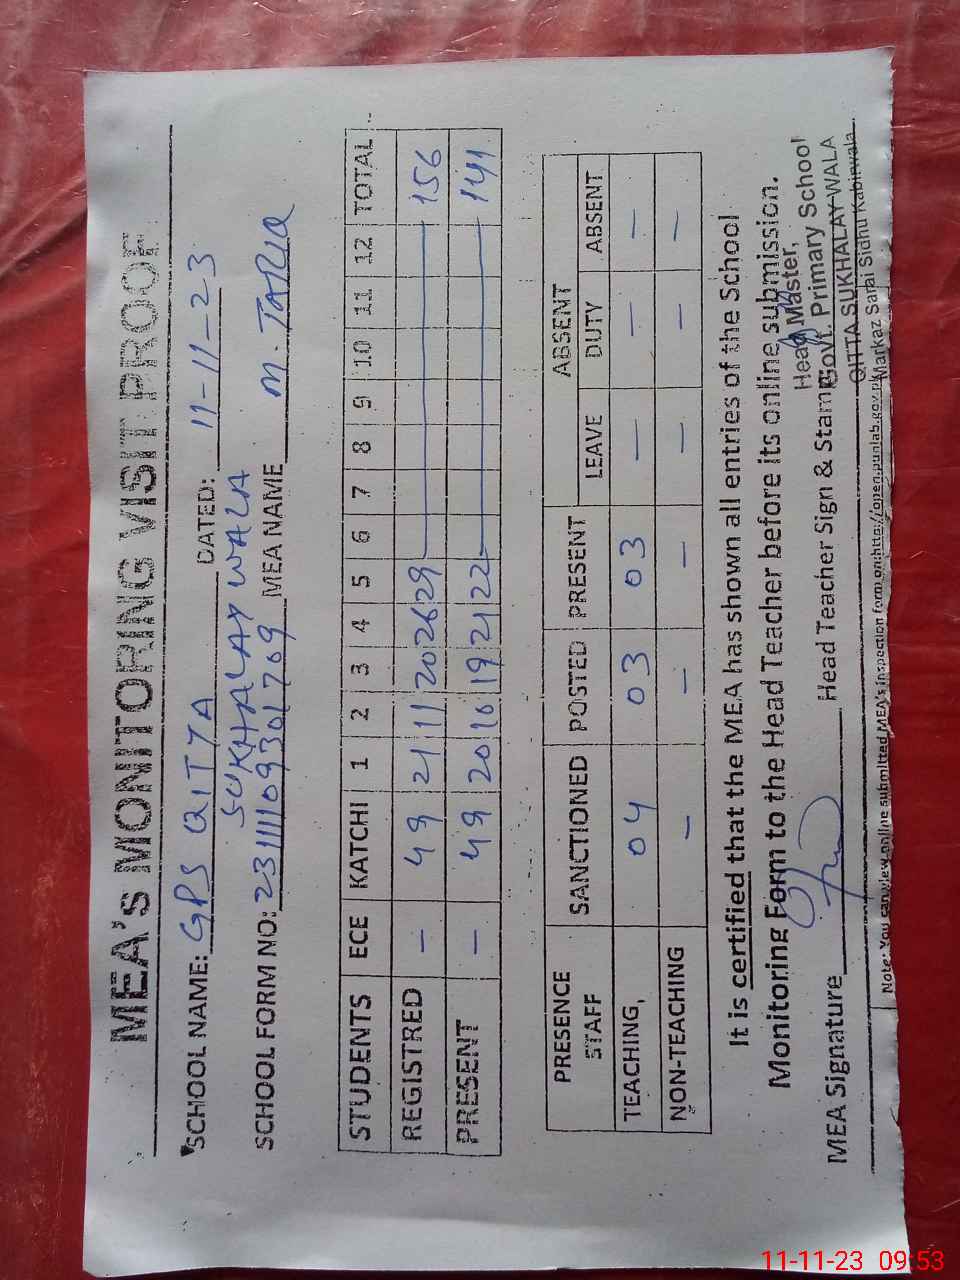 MEA's MONITORING VISIT PROOF
SCHOOL NAME: GPS QITTA DATED: 11-11-23
SUKHALAY WALA
SCHOOL FORM NO: MEA NAME M. TARIQ
STUDENTS ECE KATCHI 1 2 3 4 5 6 7 8 9 10 11 12 TOTAL
REGISTRED - 49 21 11 20 26 29 156
PRESENT - 49 20 10 19 21 22 141
PRESENCE ABSENT
STAFF SANCTIONED POSTED PRESENT LEAVE DUTY ABSENT
TEACHING, 04 03 03 - - -
NON-TEACHING - - - - - -
It is certified that the MEA has shown all entries of the School
Monitoring Form to the Head Teacher before its online submission.
Head Master,
MEA Signature Head Teacher Sign & Stamp
Govt. Primary School
QITTA SUKHALAY WALA
Markaz Sarai Sidhu Kabirwala
Note: You can view online submitted MEA's inspection form on:http://open.punjab.gov.pk
11-11-23 09:53